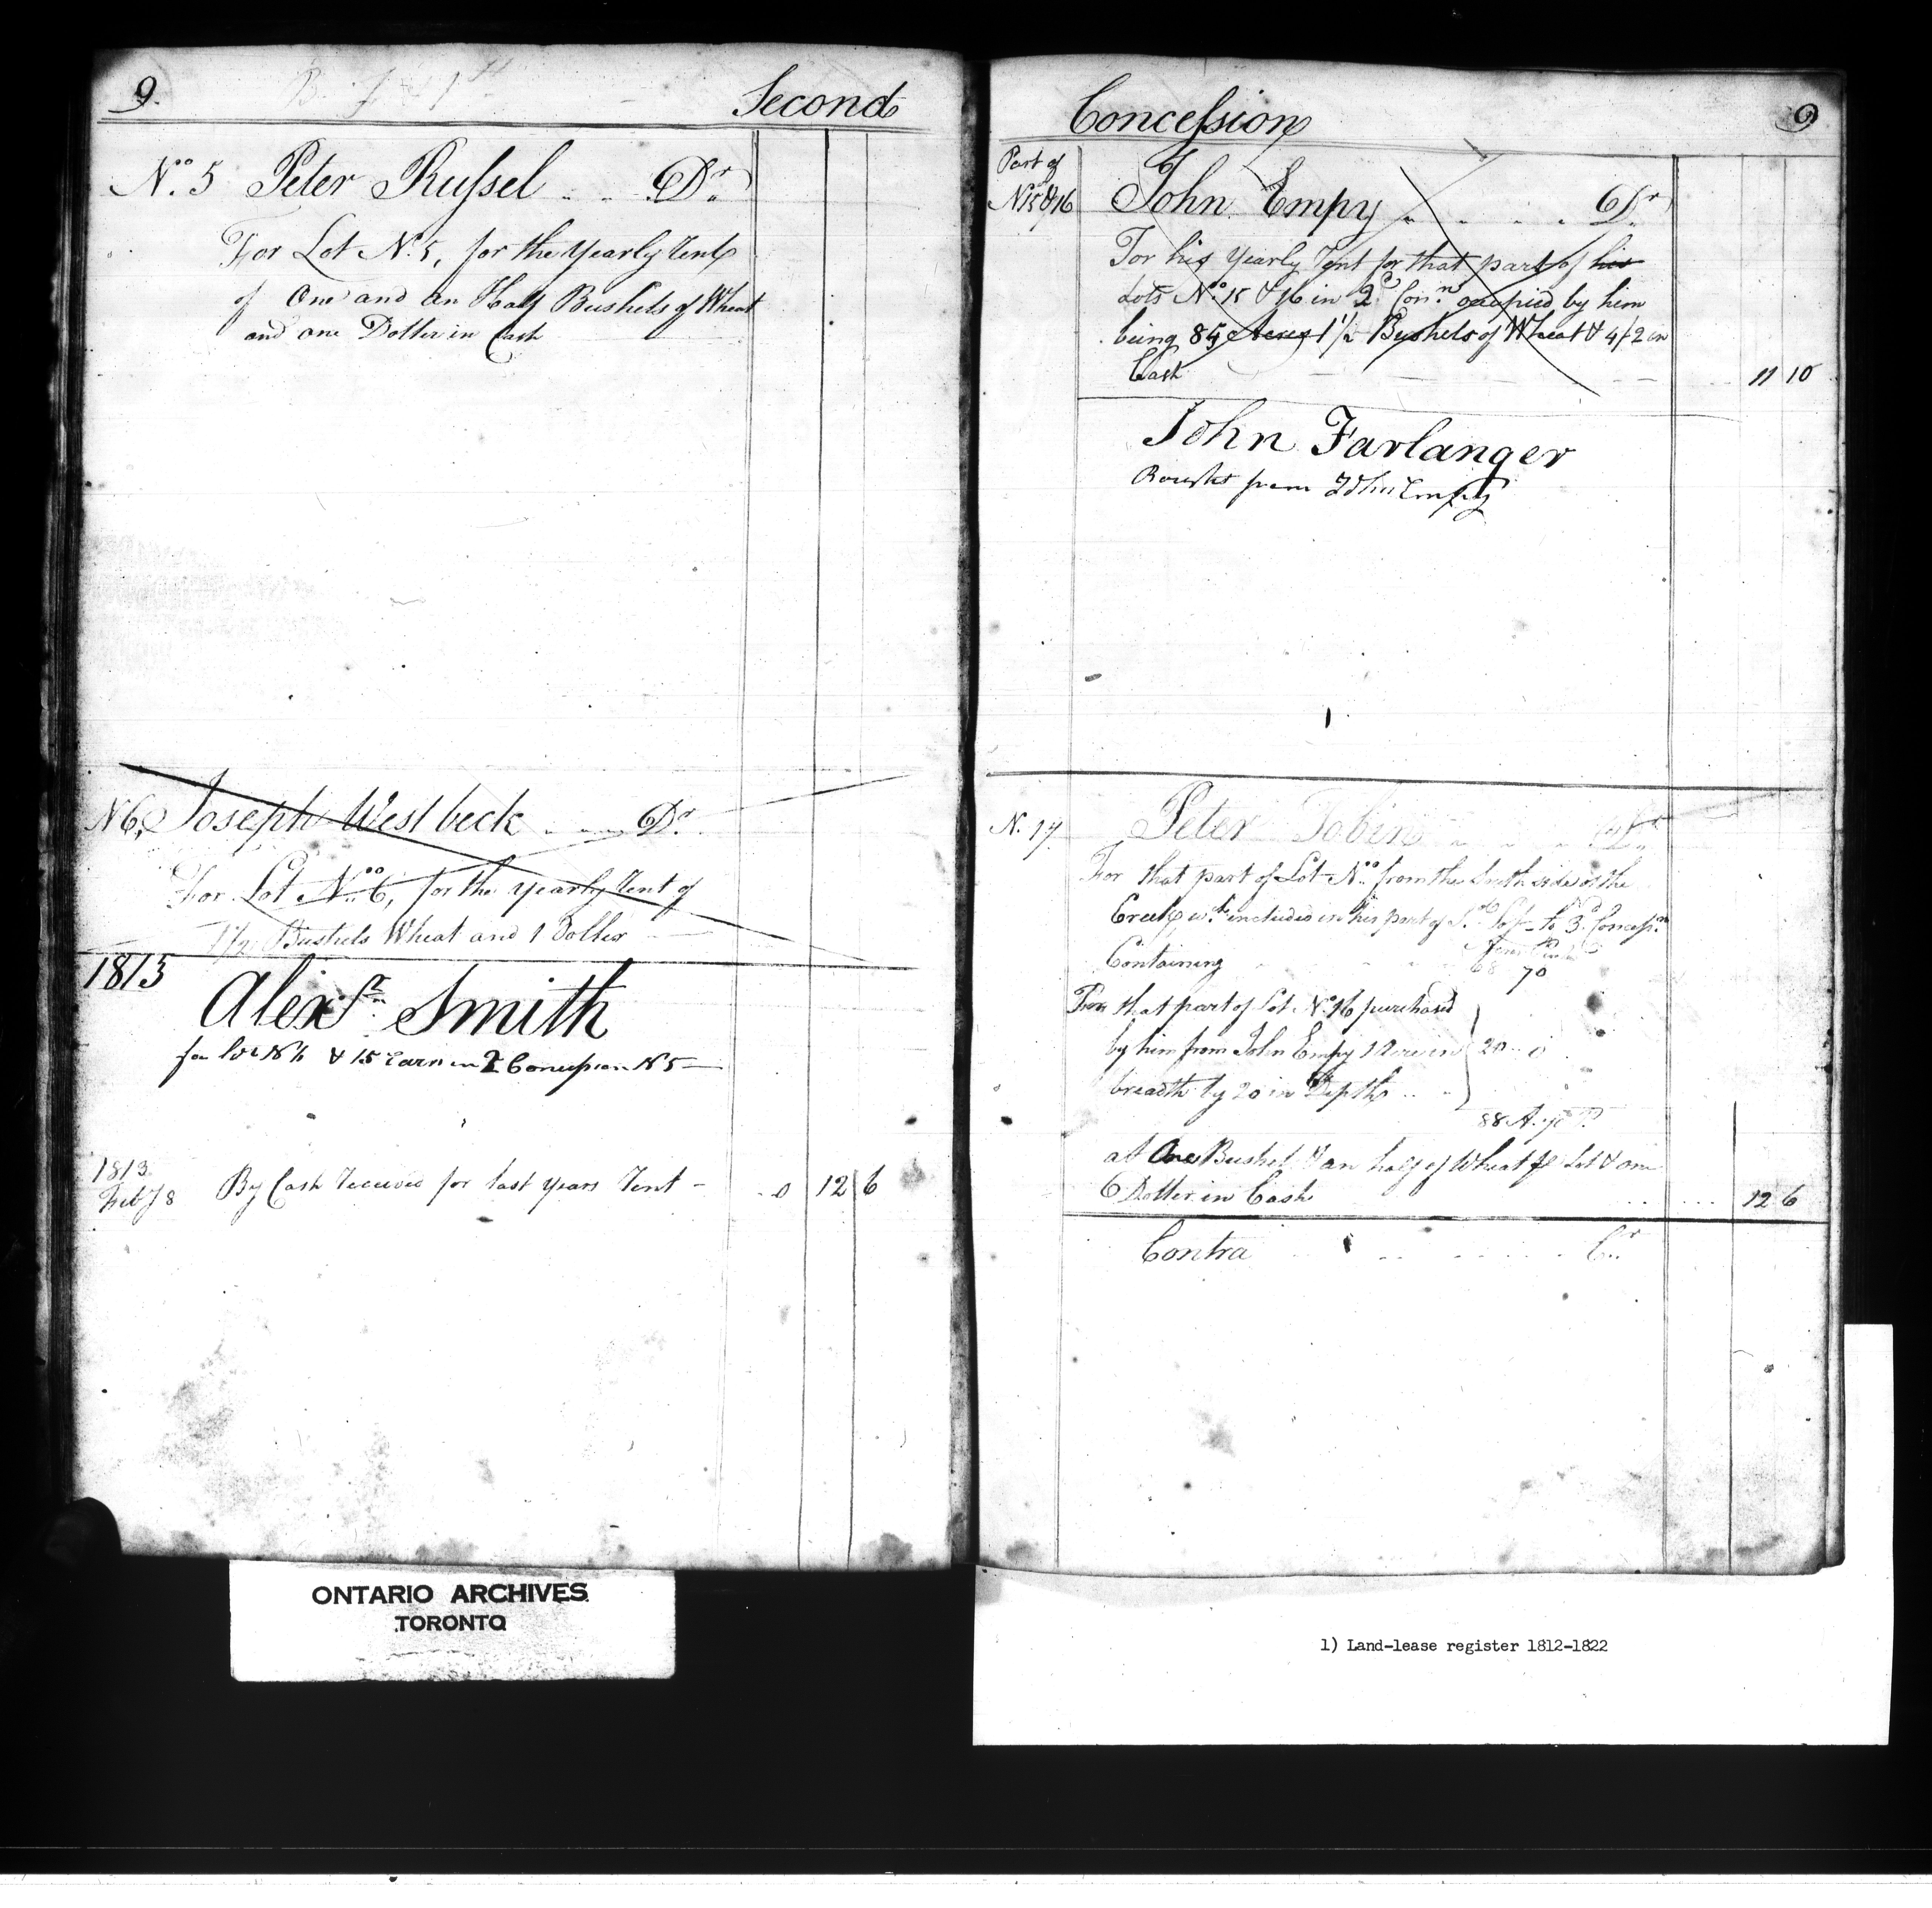 9.
Second
No. 5 Peter Russel Dr.
For Lot No. 5, for the yearly rent
of One and an Half Bushels of Wheat
and one Doller in Cash
N 6, Joseph Westbeck Dr.
For Lot No. 6, for the yearly rent of
1 1/2 Bushels Wheat and 1 Doller
1813
Alexr. Smith
for lot N 6 & 15 in 2 Concession N 5
1813
Feby 8 By Cash received for last years rent - 0 12 6
Concession
9
Part of
N 15 & 16 John Empy Dr
For his yearly rent for that part of his
Lots No. 15 & 16 in 2d Conn. occupied by him
being 85 Acres 1 1/2 Bushels of Wheat & 4/2 in
Cash 11 10
John Farlanger
Bought from John Empy
N. 17 Peter Tobin Dr
For that part of Lot No. from the South side of the
Creek included in his part of Lot to 3d Concesn
Containing 68 70
For that part of Lot No. 16 purchased
by him from John Empy 1 Acre in 20 0
breadth by 20 in Depth
88 A. 70 P.
at One Bushel & an half of Wheat Lot & one
Doller in Cash 12 6
Contra Cr
ONTARIO ARCHIVES
TORONTO
1) Land-lease register 1812-1822